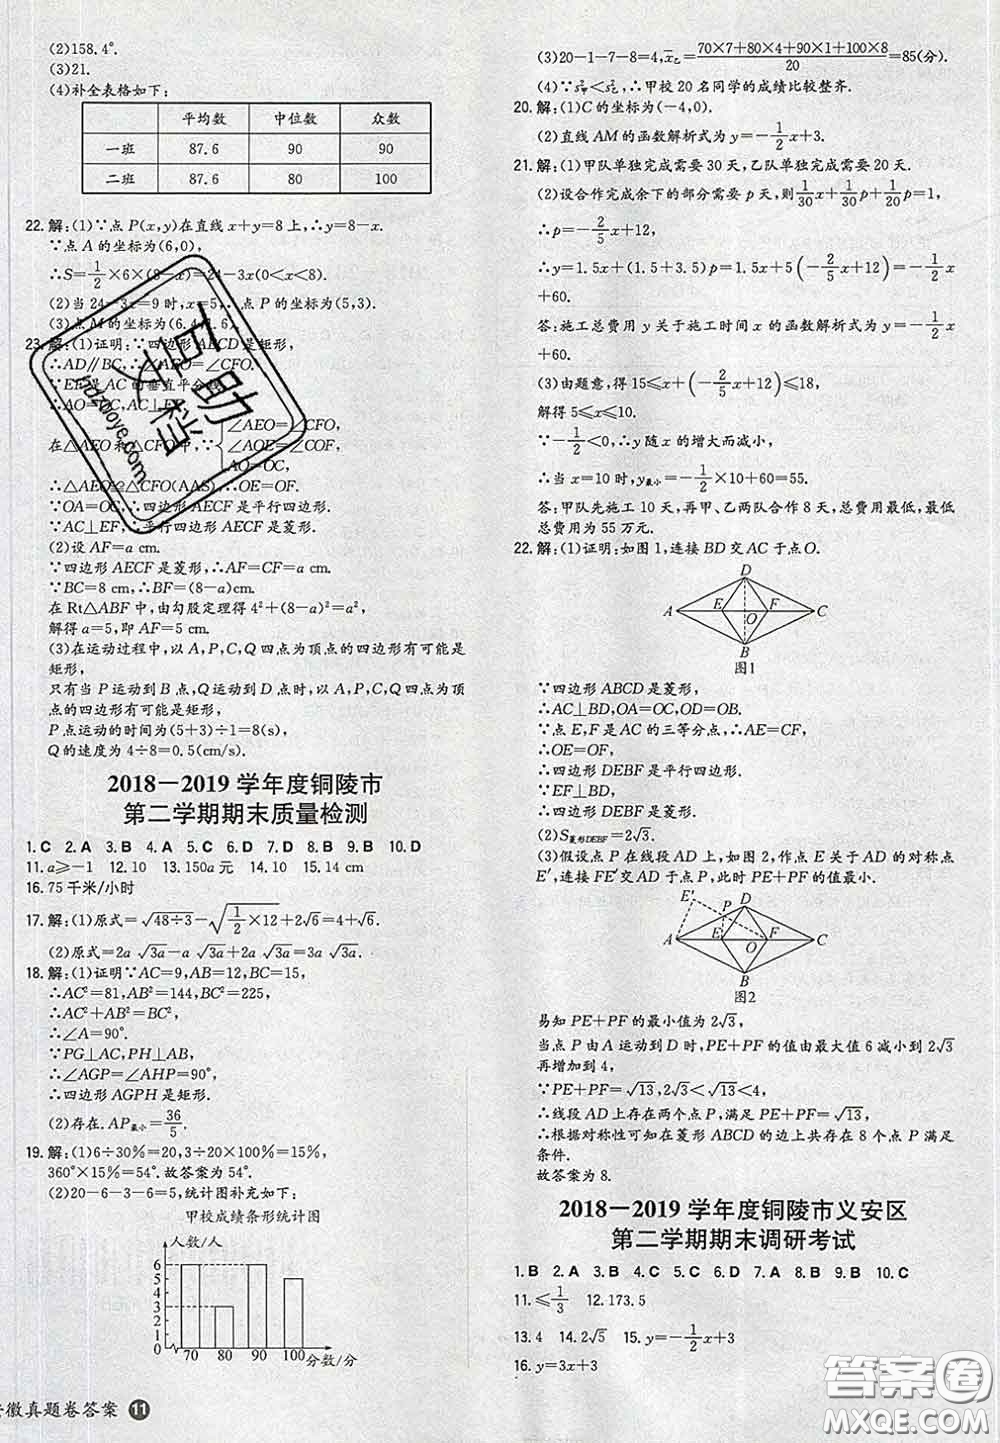 (2)158.4°.
(3)21.
(4)补全表格如下:
平均数 中位数 众数
一班 87.6 90 90
二班 87.6 80 100
22.解:(1)∵点P(x,y)在直线x+y=8上,∴y=8-x.
∵点A的坐标为(6,0),
∴S=1/2×6×(8-x)=24-3x(0<x<8).
(2)当24-3x=9时,x=5,∴点P的坐标为(5,3).
(3)点M的坐标为(6.4,1.6).
23.解:(1)证明:∵四边形ABCD是矩形,
∴AD∥BC,∴∠AEO=∠CFO.
∵EF是AC的垂直平分线,
∴AO=OC,AC⊥EF,
在△AEO和△CFO中,∵{∠AEO=∠CFO,
∠AOE=∠COF
AO=OC,
∴△AEO≌△CFO(AAS),∴OE=OF.
∵OA=OC,∴四边形AECF是平行四边形.
∵AC⊥EF,∴平行四边形AECF是菱形.
(2)设AF=a cm.
∵四边形AECF是菱形,∴AF=CF=a cm.
∵BC=8 cm,∴BF=(8-a)cm.
在Rt△ABF中,由勾股定理得4²+(8-a)²=a²,
解得a=5,即AF=5 cm.
(3)在运动过程中,以A,P,C,Q四点为顶点的四边形有可能是
矩形,
只有当P运动到B点,Q运动到D点时,以A,P,C,Q四点为顶
点的四边形有可能是矩形,
P点运动的时间为(5+3)÷1=8(s),
Q的速度为4÷8=0.5(cm/s).
2018-2019学年度铜陵市
第二学期期末质量检测
1.C 2.A 3.B 4.A 5.C 6.D 7.D 8.B 9.B 10.D
11.a≥-1 12.10 13.150a元 14.10 15.14 cm
16.75千米/小时
17.解:(1)原式=√(48÷3)-√(1/2×12)+2√6=4+√6.
(2)原式=2a√(3a)-a√(3a)+2a√(3a)=3a√(3a).
18.解:(1)证明∵AC=9,AB=12,BC=15,
∴AC²=81,AB²=144,BC²=225,
∴AC²+AB²=BC²,
∴∠A=90°.
∵PG⊥AC,PH⊥AB,
∴∠AGP=∠AHP=90°,
∴四边形AGPH是矩形.
(2)存在.AP最小=36/5.
19.解:(1)6÷30%=20,3÷20×100%=15%,
360°×15%=54°.故答案为54°.
(2)20-6-3-6=5,统计图补充如下:
甲校成绩条形统计图
人数/人
6
5
4
3
2
1
0 70 80 90 100 分数/分
徽真题卷答案 11
(3)20-1-7-8=4,x̄乙=(70×7+80×4+90×1+100×8)/20=85(分).
(4)∵s²甲<s²乙,∴甲校20名同学的成绩比较整齐.
20.解:(1)C的坐标为(-4,0).
(2)直线AM的函数解析式为y=-1/2x+3.
21.解:(1)甲队单独完成需要30天,乙队单独完成需要20天.
(2)设合作完成余下的部分需要p天,则1/30x+1/30p+1/20p=1,
∴p=-2/5x+12,
∴y=1.5x+(1.5+3.5)p=1.5x+5(-2/5x+12)=-1/2x
+60.
答:施工总费用y关于施工时间x的函数解析式为y=-1/2x
+60.
(3)由题意,得15≤x+(-2/5x+12)≤18,
解得5≤x≤10.
∵-1/2<0,∴y随x的增大而减小,
∴当x=10时,y最小=-1/2×10+60=55.
答:甲队先施工10天,再甲、乙两队合作8天,总费用最低,最低
总费用为55万元.
22.解:(1)证明:如图1,连接BD交AC于点O.
D
A E O F C
B
图1
∵四边形ABCD是菱形,
∴AC⊥BD,OA=OC,OD=OB.
∵点E,F是AC的三等分点,∴AE=CF,
∴OE=OF,
∴四边形DEBF是平行四边形.
∵EF⊥BD,
∴四边形DEBF是菱形.
(2)S菱形DEBF=2√3.
(3)假设点P在线段AD上,如图2,作点E关于AD的对称点
E′,连接FE′交AD于点P,此时PE+PF的值最小.
E′
P D
A E O F C
B
图2
易知PE+PF的最小值为2√3,
当点P由A运动到D时,PE+PF的值由最大值6减小到2√3
再增加到4,
∵PE+PF=√13,2√3<√13<4,
∴线段AD上存在两个点P,满足PE+PF=√13,
∴根据对称性可知在菱形ABCD的边上共存在8个点P满足
条件.
故答案为8.
2018-2019学年度铜陵市义安区
第二学期期末调研考试
1.B 2.A 3.B 4.C 5.C 6.D 7.A 8.B 9.B 10.C
11.≤1/3 12.173.5
13.4 14.2√5 15.y=-1/2x+3
16.y=3x+3
百助文档
答案圈
MXQE.COM